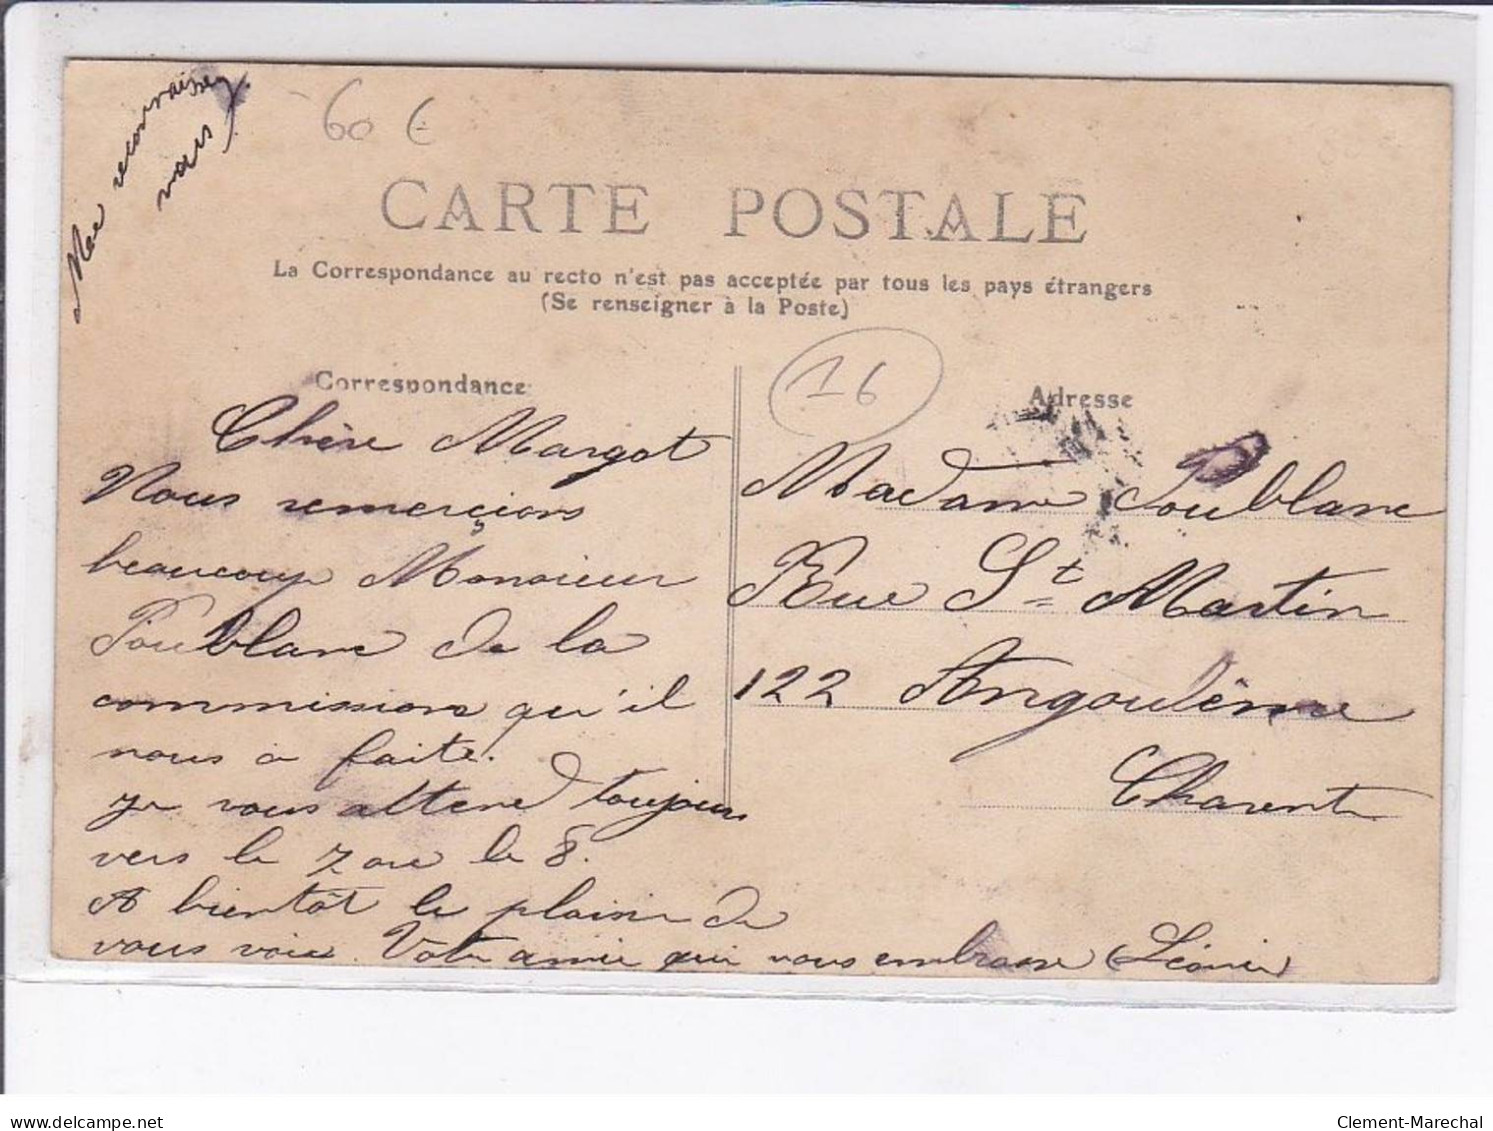 Me reconnaissez
vous
60 €
CARTE POSTALE
La Correspondance au recto n'est pas acceptée par tous les pays étrangers
(Se renseigner à la Poste)
Correspondance
Chère Margot
Nous remerçions
beaucoup Monsieur
Poublanc de la
commissions qu'il
nous a faite.
Je vous attend toujours
vers le 7 ou le 8.
A bientôt le plaisir de
vous voir. Votre amie qui vous embrasse (Léonie)
16
Adresse
Madame Poublanc
Rue St Martin
122 Angoulême
Charente
delcampe.net
Clement-Marechal